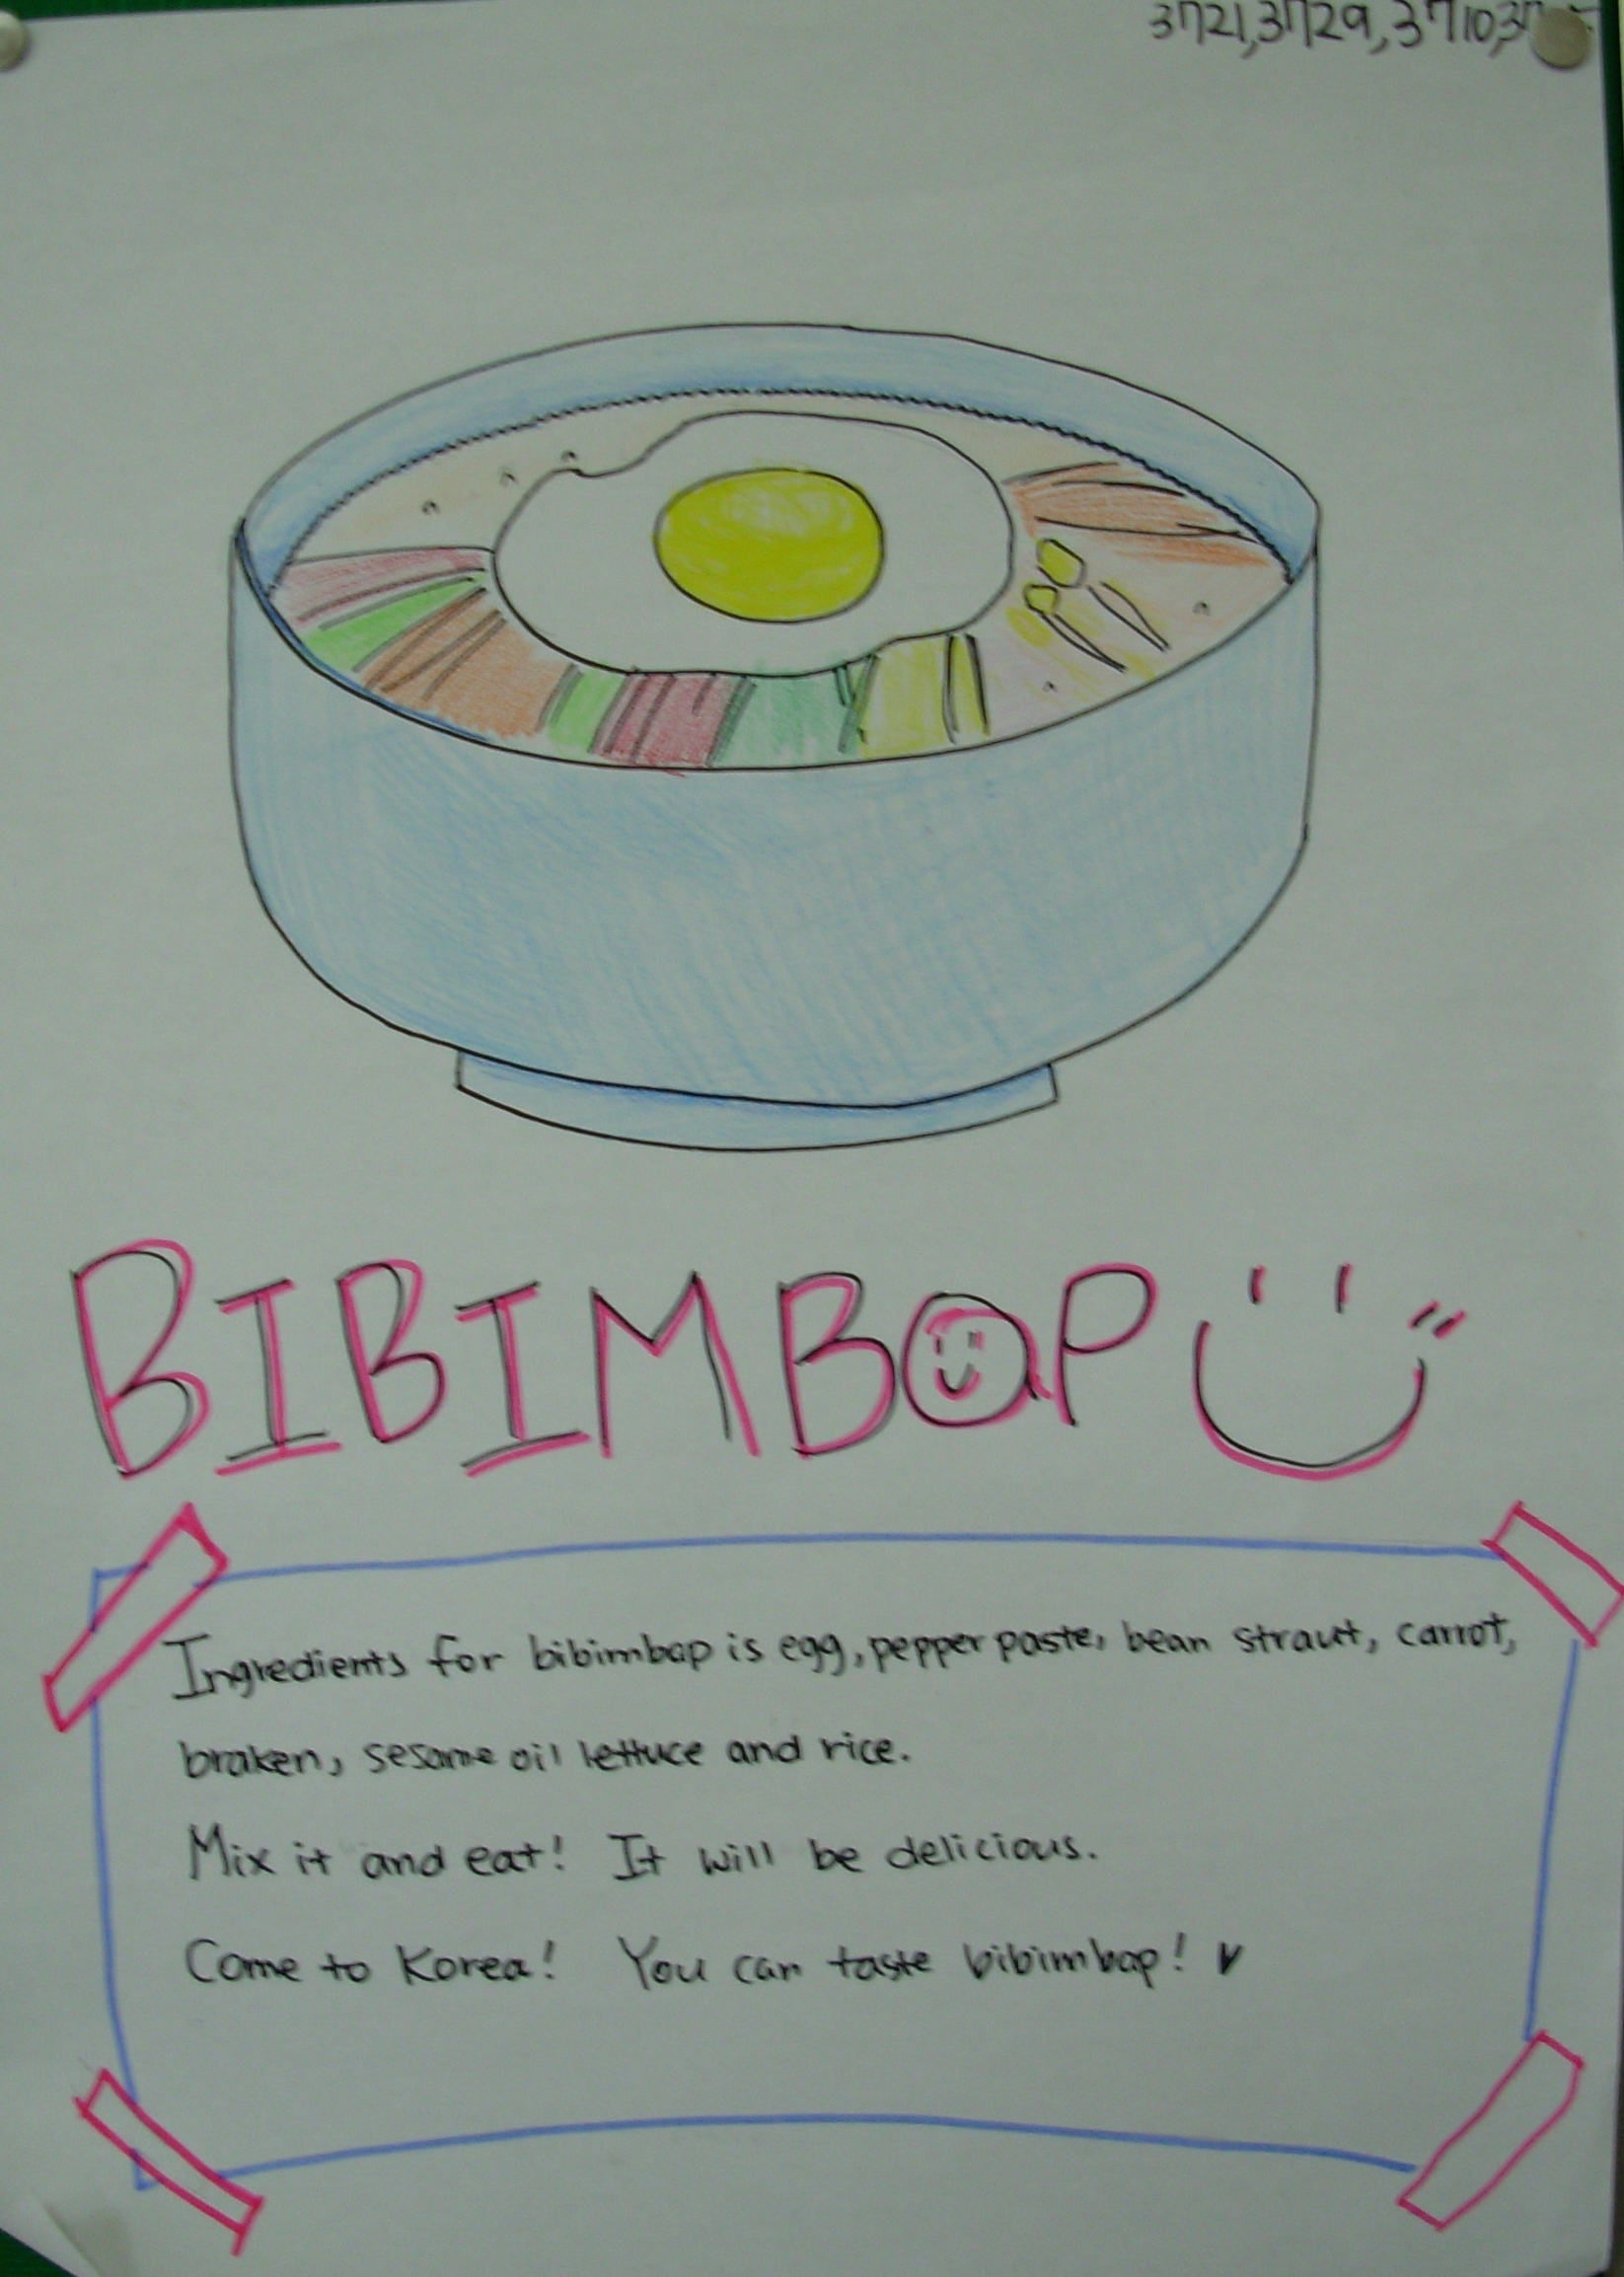 3721,3729,3710,37
BIBIMBaP
Ingredients for bibimbap is egg, pepper paste, bean straut, carrot,
braken, sesame oil lettuce and rice.
Mix it and eat! It will be delicious.
Come to Korea! You can taste bibimbap! ♥